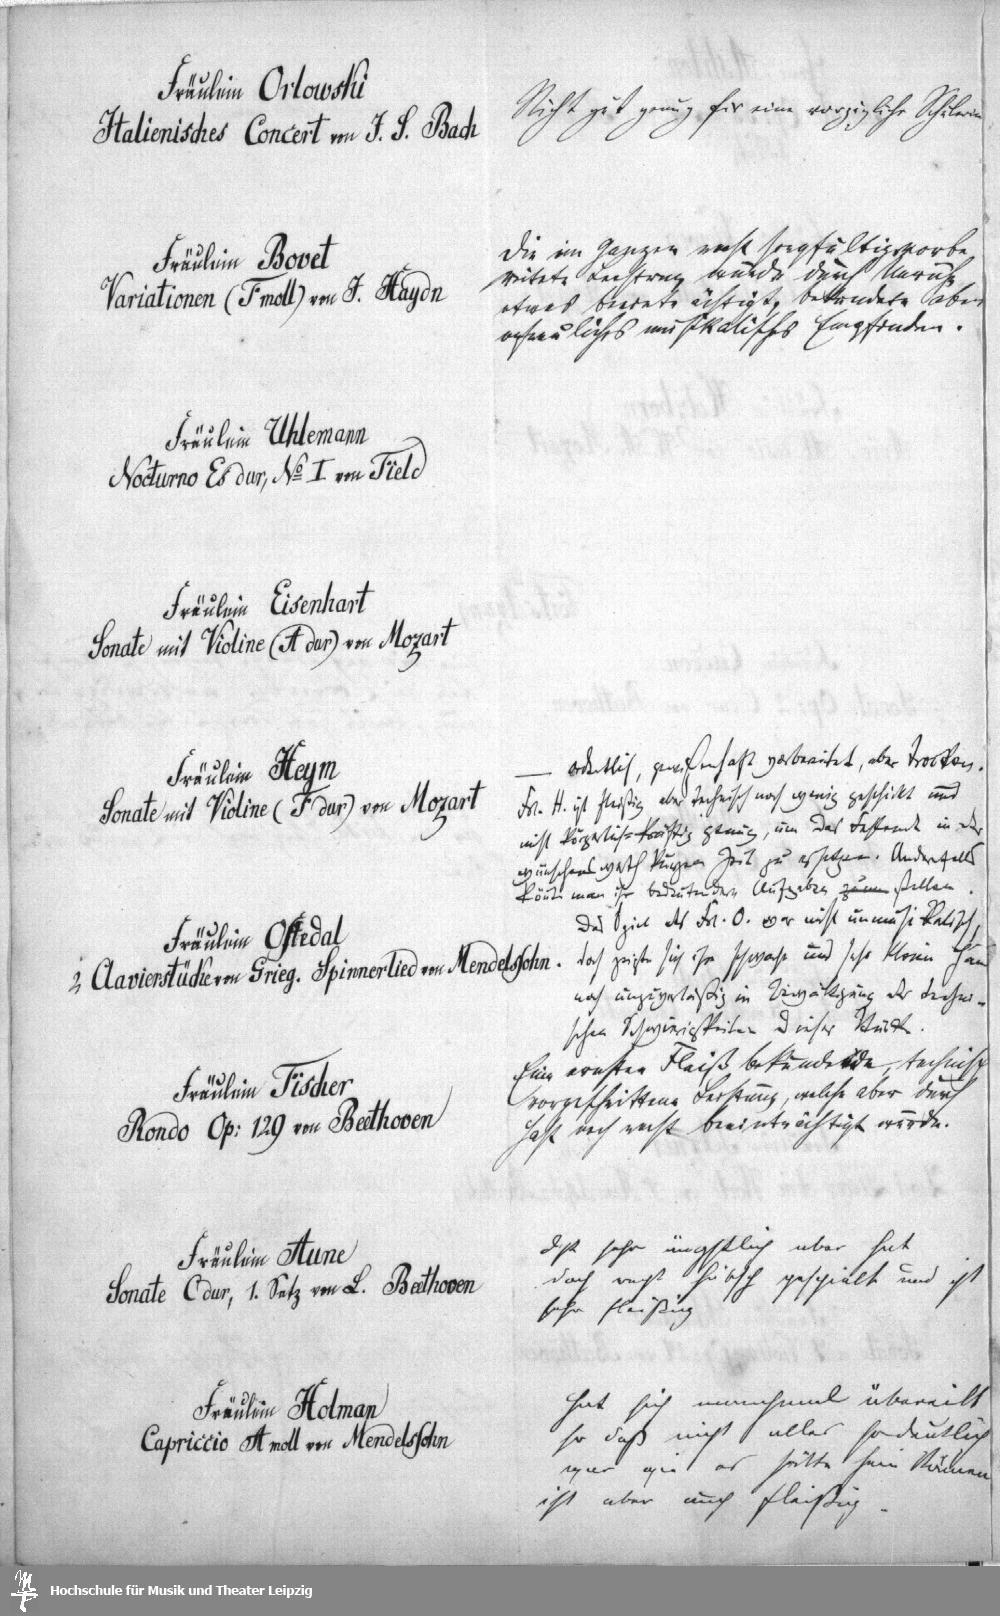 Fräulein Orlowski
Italienisches Concert von J. S. Bach
Nicht gut genug für eine vorzügliche Schülerin
Fräulein Bovet
Variationen (F moll) von J. Haydn
Die im Ganzen recht sorgfältig vorbe
reitete Leistung wurde durch Unruhe
etwas beeinträchtigt, bekundete aber
erfreuliches musikalisches Empfinden.
Fräulein Uhlemann
Nocturno Es dur, No I von Field
Fräulein Eisenhart
Sonate mit Violine (A dur) von Mozart
Fräulein Heym
Sonate mit Violine (F dur) von Mozart
— ordentlich, gewissenhaft vorbereitet, aber trocken.
Frl. H. ist fleißig aber technisch noch wenig geschickt und
nicht körperlich=kräftig genug, um das Fehlende in der
wünschenswerth kurzen Zeit zu ersetzen. Anderenfalls
könnte man ihr bedeutendere Aufgaben zum stellen.
Fräulein Oftedal
2 Clavierstücke von Grieg. Spinnerlied von Mendelssohn.
Das Spiel des Frl. O. war nicht unmusikalisch,
doch zeigte sich ihre schwache und sehr kleine Hand
noch unzuverlässig in Bewältigung der techni-
schen Schwierigkeiten dieser Stücke.
Fräulein Fischer
Rondo Op: 129 von Beethoven
Eine ernsten Fleiß bekundende, technisch
vorgeschrittene Leistung, welche aber durch
Hast noch recht beeinträchtigt wurde.
Fräulein Aune
Sonate C dur, 1. Satz von L. Beethoven
Ist sehr ängstlich aber hat
doch recht hübsch gespielt und ist
sehr fleißig
Fräulein Holman
Capriccio A moll von Mendelssohn
Hat sich manchmal übereilt
so daß nicht alles so deutlich
war wie es hätte sein können
ist aber auch fleißig.
Hochschule für Musik und Theater Leipzig